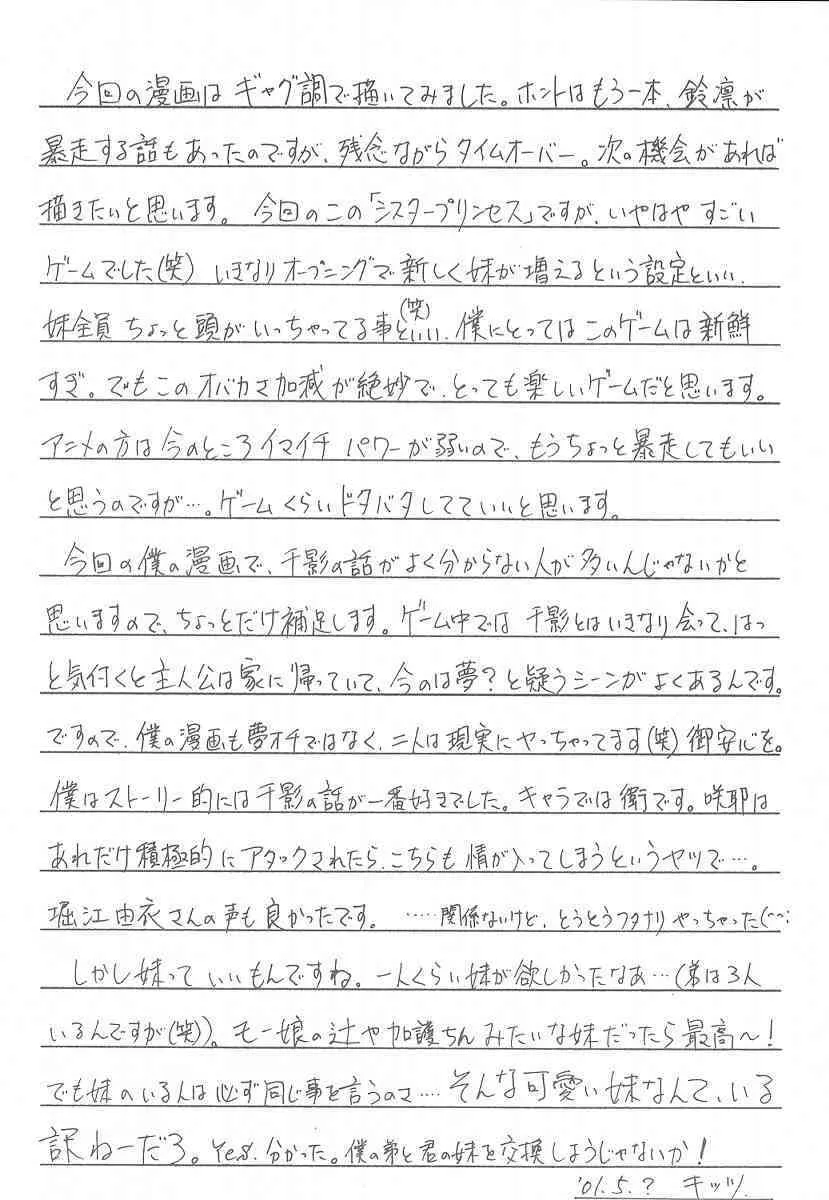 今回の漫画はギャグ調で描いてみました。ホントはもう一本、鈴凛が
暴走する話もあったのですが、残念ながらタイムオーバー。次の機会があれば
描きたいと思います。今回のこの「シスタープリンセス」ですが、いやはやすごい
ゲームでした(笑) いきなりオープニングで新しく妹が増えるという設定といい、
妹全員ちょっと頭がいっちゃってる事といい(笑)、僕にとってはこのゲームは新鮮
すぎ。でもこのオバカさ加減が絶妙で、とっても楽しいゲームだと思います。
アニメの方は今のところイマイチパワーが弱いので、もうちょっと暴走してもいい
と思うのですが…。ゲームくらいドタバタしてていいと思います。
今回の僕の漫画で、千影の話がよく分からない人が多いんじゃないかと
思いますので、ちょっとだけ補足します。ゲーム中では千影とはいきなり会って、はっ
と気付くと主人公は家に帰っていて、今のは夢?と疑うシーンがよくあるんです。
ですので、僕の漫画も夢オチではなく、二人は現実にヤっちゃってます(笑)御安心を。
僕はストーリー的には千影の話が一番好きでした。キャラでは衛です。咲耶は
あれだけ積極的にアタックされたら、こちらも情が入ってしまうというヤツで…。
堀江由衣さんの声も良かったです。……関係ないけど、とうとうフタナリやっちゃった(^^;
しかし妹っていいもんですね。一人くらい妹が欲しかったなあ…(弟は3人
いるんですが(笑))。モー娘の辻や加護ちんみたいな妹だったら最高〜!
でも妹のいる人は必ず同じ事を言うのさ…。そんな可愛い妹なんて、いる
訳ねーだろ。Yes.分かった。僕の弟と君の妹を交換しようじゃないか!
'01.5.? キッツ